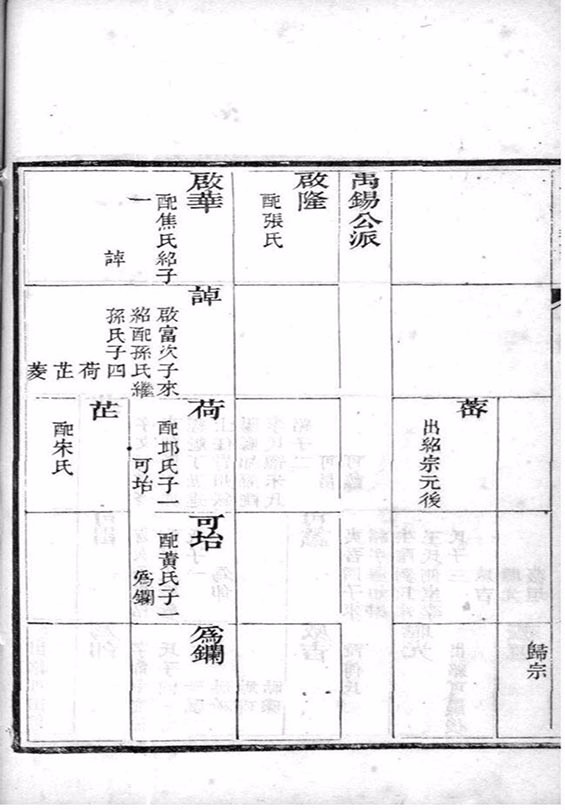 歸宗
出紹宗元後
禹錫公派
啟隆
配張氏
啟華
配焦氏紹子
一
啟富次子來
紹配孫氏繼
孫氏子四
荷
芷
菱
荷
配邱氏子一
可坮
芷
配宋氏
可坮
配黃氏子一
爲鑭
爲鑭